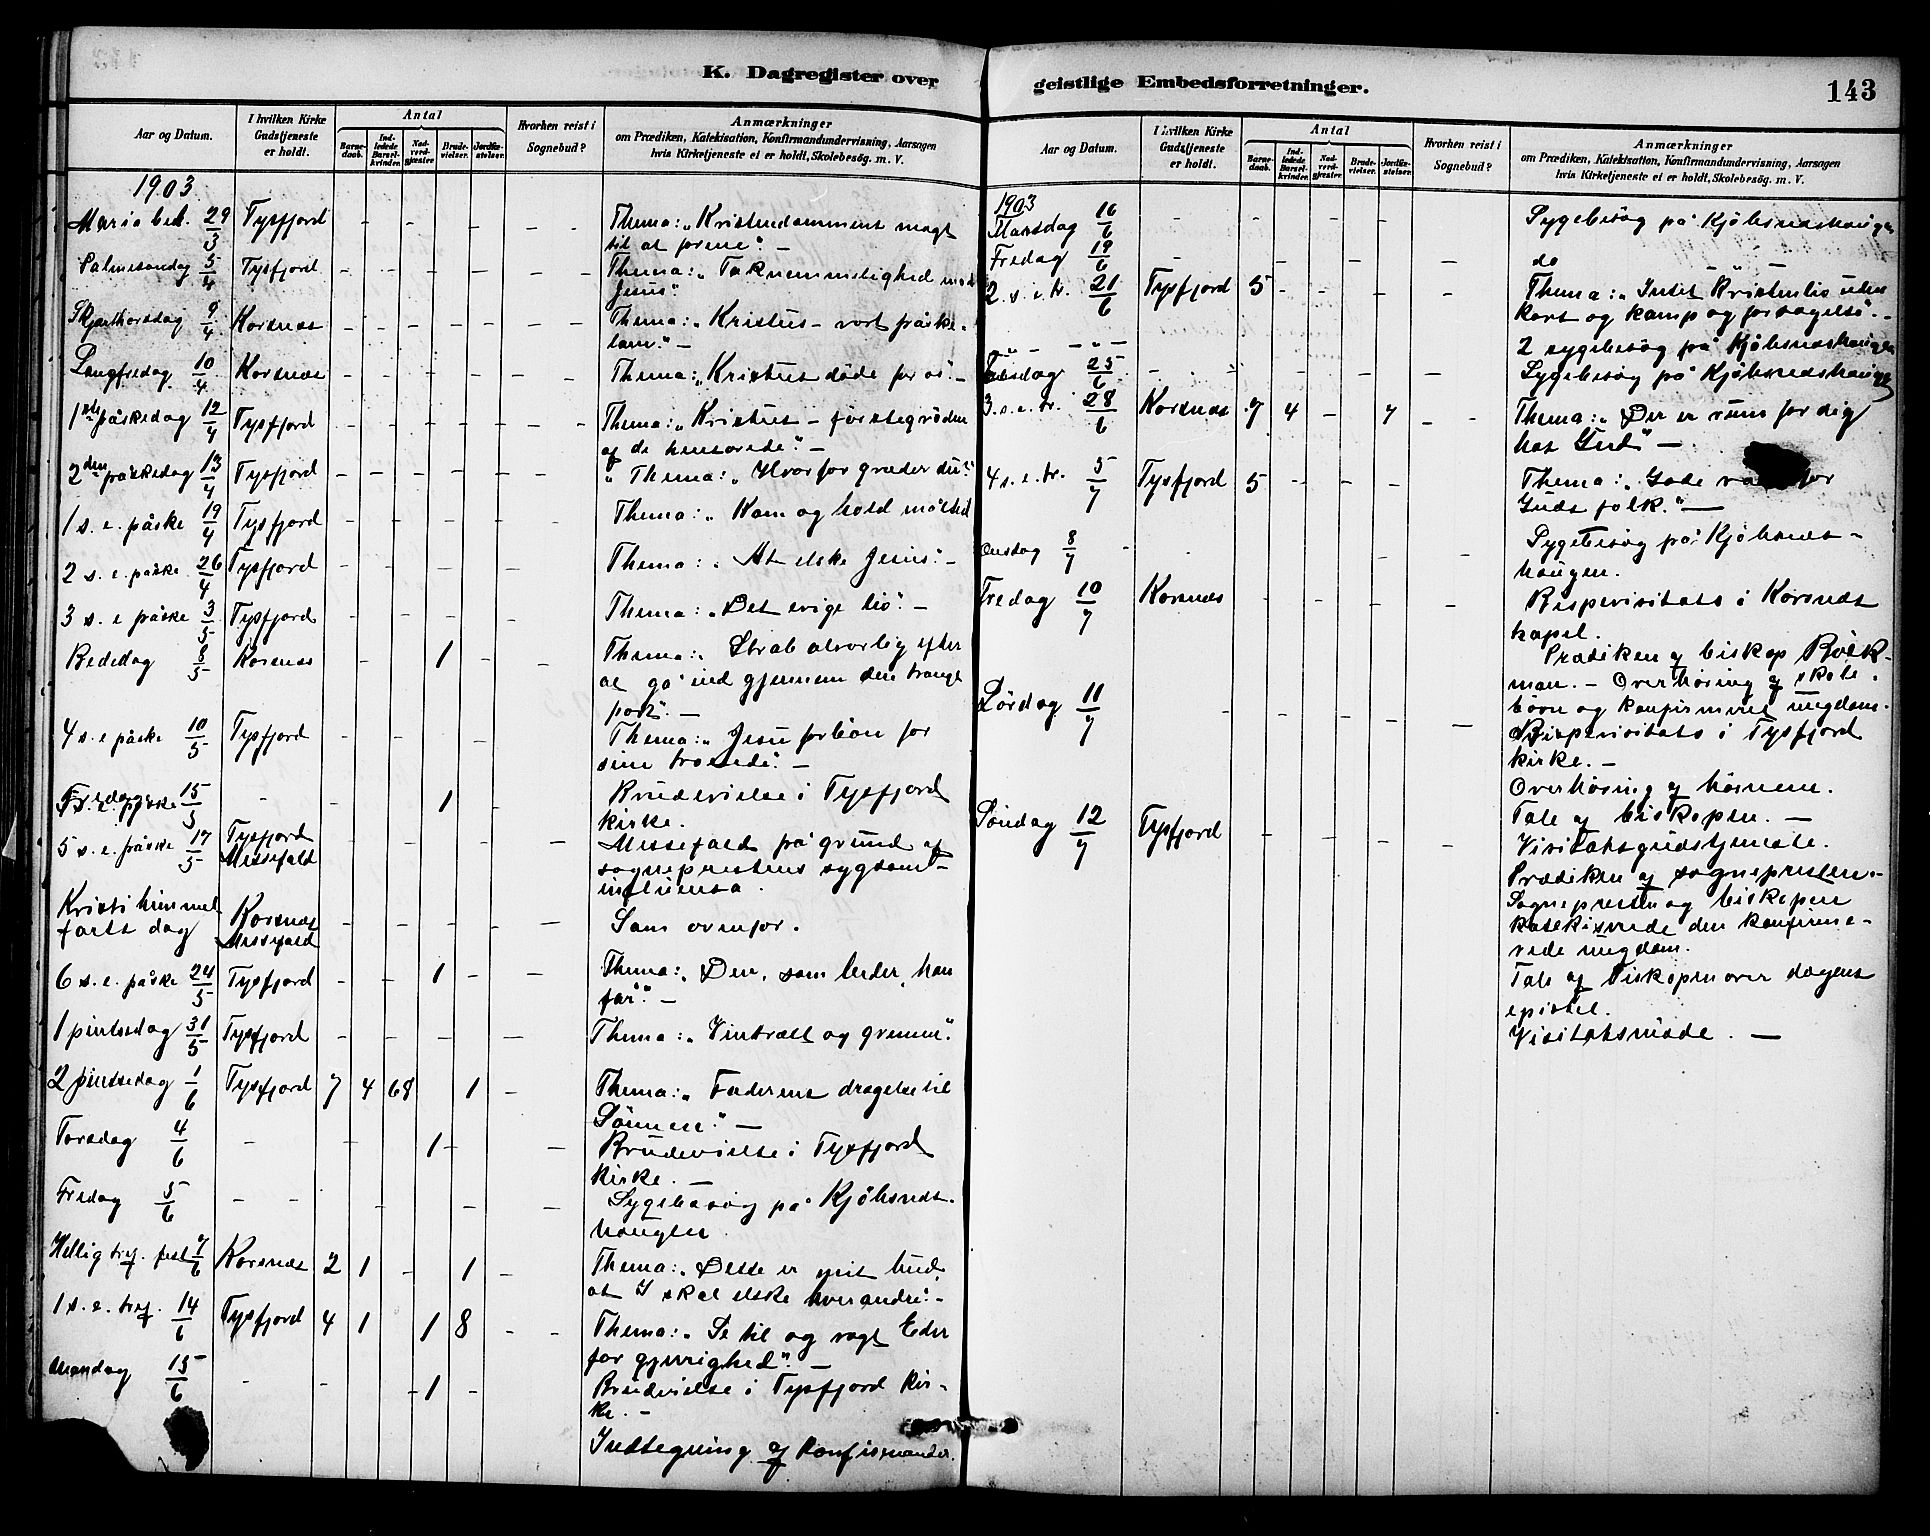 K. Dagregister over
Aar og Datum. I hvilken Kirke Gudstjeneste er holdt. Antal Barnedaab. Indledede Barselkvinder. Nadverdgjæster. Brudevielser. Jordfæstelser. Hvorhen reist i Sognebud? Anmærkninger om Prædiken, Katekisation, Konfirmandundervisning, Aarsagen hvis Kirketjeneste ei er holdt, Skolebesøg. m. V.
1903
Maria beb. 29/3 Tysfjord - - - - - - Thema: „Kristendommens magt
til at forene". -
Palmesøndag 5/4 Tysfjord - - - - - - Thema: „Taknemmelighed mod
Jesus".
Skjærthorsdag 9/4 Korsnes - - - - - - Thema: „Kristus - vort påske-
lam." -
Langfredag 10/4 Korsnes - - - - - - Thema: „Kristus døde for os". -
1ste påskedag 12/4 Tysfjord - - - - - - Thema: „Kristus - førstegrøden
af de hensovede". -
2den påskedag 13/4 Tysfjord - - - - - - Thema: „Hvorfor græder du?"
1 s. e. påske 19/4 Tysfjord - - - - - Thema: „Kom og hold måltid
2 s. e. påske 26/4 Tysfjord - - - - - Thema: „At elske Jesus". -
3 s. e påske 3/5 Tysfjord - - - - - Thema: „Det evige liv". -
Bededag 8/5 Korsnes - - 1 - - Thema: „Stræb alvorlig efter
at gå ind gjennem den trange
port". -
4 s. e påske 10/5 Tysfjord - - - Thema: „Jesu forbøn for
sine troende". -
Fredag 15/5 - - 1 - Brudevielse i Tysfjord
kirke.
5 s. e. påske 17/5 Tysfjord Messefald - - - - - - Messefald på grund af
sogneprestens sygdom -
influensa.
Kristi himmel
farts dag Korsnes Messefald - - - - - - Som ovenfor.
6 s. e. påske 24/5 Tysfjord - - 1 - - Thema: „Den, som beder, han
får". -
1 pintsedag 31/5 Tysfjord - - - - - - Thema: „Vintræet og grenen".
2 pintsedag 1/6 Tysfjord 7 4 68 1 - Thema: „Faderens dragelse til
Sønnen". -
Torsdag 4/6 - - 1 - - Brudevielse i Tysfjord
kirke. -
Fredag 5/6 - - - - - Sygebesøg på Kjöbsnes-
haugen
Hellig tref. fest 7/6 Korsnes 2 1 - 1 - Thema: „Dette er mit bud,
at I skal elske hverandre". -
1 s. e. tref. 14/6 Tysfjord 4 1 1 8 - - Thema: „Se til og vogt Eder
for gjerrighed". -
Mandag 15/6 - - - 1 - Brudevielse i Tysfjord kir-
ke. -
Indtegning af konfirmander.
geistlige Embedsforretninger. 143
Aar og Datum. I hvilken Kirke Gudstjeneste er holdt. Antal Barnedaab. Indledede Barselkvinder. Nadverdgjæster. Brudevielser. Jordfæstelser. Hvorhen reist i Sognebud? Anmærkninger om Prædiken, Katekisation, Konfirmandundervisning, Aarsagen hvis Kirketjeneste ei er holdt, Skolebesøg. m. V.
1903
16/6 - - - - - - Sygebesøg på Kjöbsneshaugen
Fredag 19/6 - - - - - do - " -
2. s. e. tr. 21/6 Tysfjord 5 - - - - Thema: „Intet Kristenliv uden
kors og kamp og forsagelse". -
- " - - " - 2 sygebesøg på Kjöbsneshaugen
25/6 - - - - - - Sygebesøg på Kjöbsneshaugen
3. s. e. tr. 28/6 Korsnes 7 4 - 7 - - Thema: „Der er rum for dig
hos Gud" -
4 s. e. tr. 5/7 Tysfjord 5 - - - - Thema: „Gode for
Guds folk." -
Onsdag 8/7 - - - - Sygebesøg på Kjöbsnes-
haugen.
Fredag 10/7 Korsnes - - - - - Bispevisitats i Korsnes
kapel.
Prædiken af biskop Böck-
man. - Overhöring af skole-
børn og konfirmeret ungdom.
Lørdag 11/7 - - - - - - Bispevisitats i Tysfjord
kirke. -
Overhöring af börnene.
Tale af biskopen. -
Søndag 12/7 Tysfjord - - - - Visitatsgudstjeneste.
Prædiken af sognepresten. -
Sognepresten og biskopen
katekiserede den konfirme-
rede ungdom.
Tale af biskopen over dagens
epistel.
Visitatsmøde. -